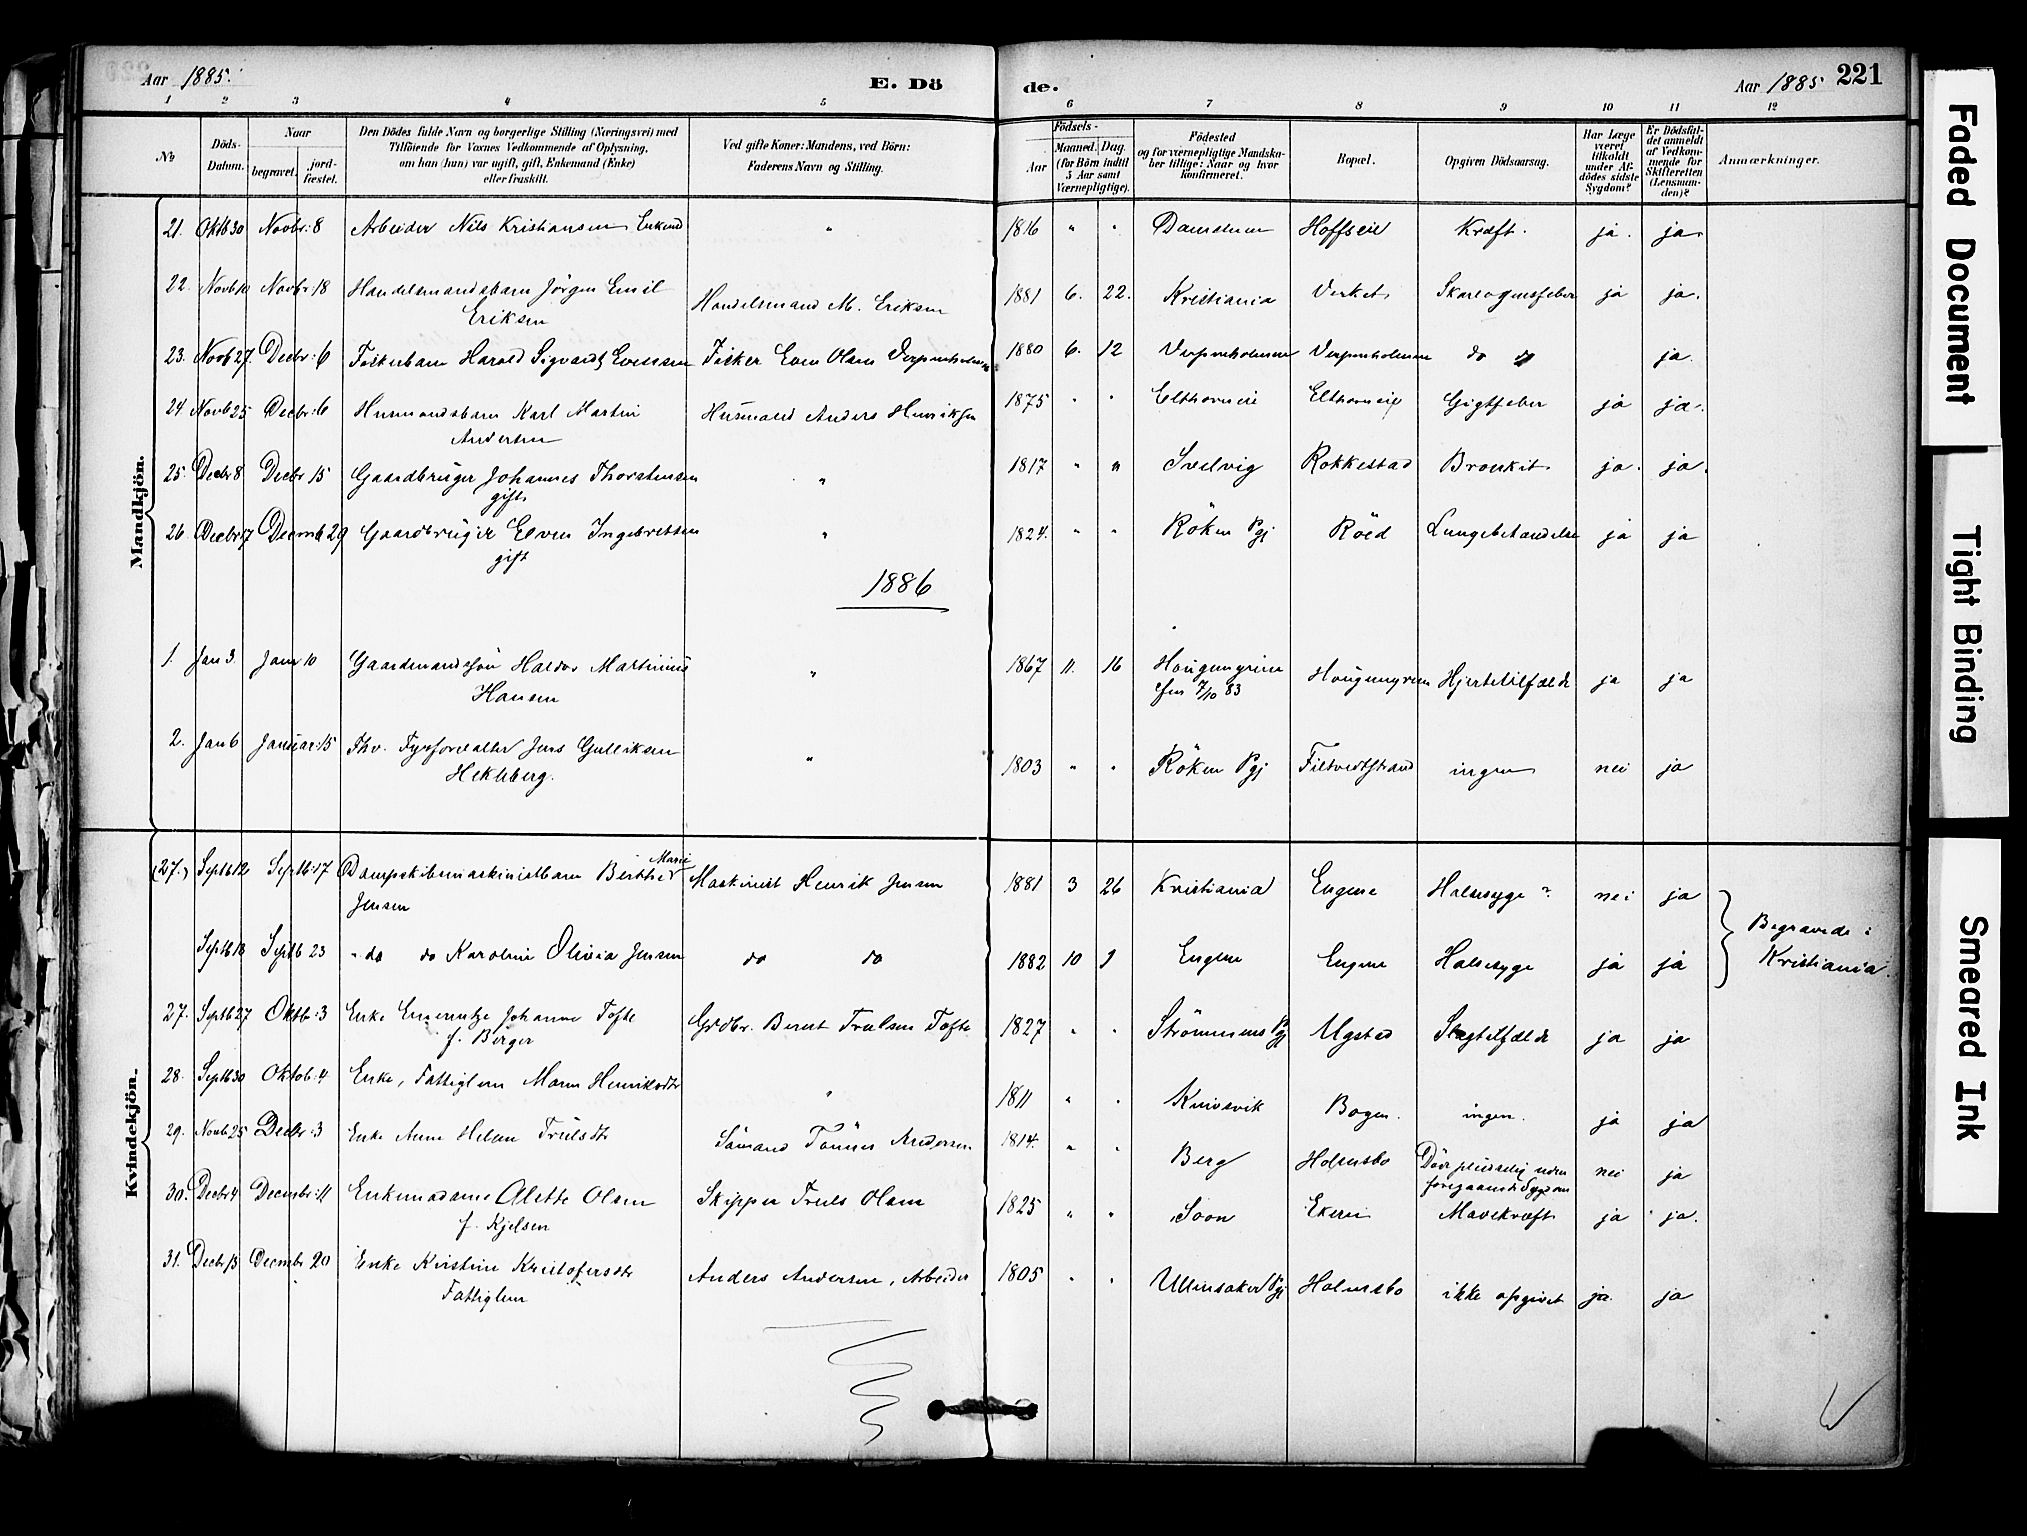 Aar 1885.
E. Döde.
Aar 1885
221
1 2 3 4 5 6 7 8 9 10 11 12
No
Döds-Datum.
Naar
begravet.
jord-fæstet.
Den Dödes fulde Navn og borgerlige Stilling (Næringsvei) med
Tilföiende for Voxnes Vedkommende af Oplysning,
om han (hun) var ugift, gift, Enkemand (Enke)
eller fraskilt.
Ved gifte Koner: Mandens, ved Börn:
Faderens Navn og Stilling.
Födsels-
Aar
Maaned. Dag.
(for Börn indtil
5 Aar samt
Værnepligtige).
Födested
og for værnepligtige Mandska-
ber tillige: Naar og hvor
konfirmeret.
Bopæl.
Opgiven Dödsaarsag.
Har Læge
været
tilkaldt
under Af-
dödes sidste
Sygdom?
Er Dödsfal-
det anmeldt
af Vedkom-
mende for
Skifteretten
(Lensman-
den)?
Anmærkninger.
Mandkjön.
21. Oktb 30 Novbr: 8 Arbeider Nils Kristiansen Enkmd " 1816 " " Hoffseie Kræft. ja. ja.
22. Novb 10 Novbr 18 Handelsmandsbarn Jörgen Emil Handelsmand M. Eriksen 1881 6. 22. Kristiania Verket ja ja.
Eriksen
23. Novb 27. Decbr: 6 Fiskerbarn Harald Sigvardt Evensen Fisker Even Olsen Verpenholmen 1880 6. 12 Verpenholmen Verpenholmen do do ja.
24 Novb 25 Decbr: 6 Husmandsbarn Karl Martin Husmand Anders Henriksen 1875 " " Elthorneie Elthorneie Gigtfeber ja ja.
Andersen
25. Decbr 8 Decbr 15 Gaardbruger Johannes Thorstensen " 1817 " " Svelvig Rokkestad Bronkit. ja. ja.
gift
26. Decbr 17 Decemb 29 Gaardbruger Even Ingebretsen " 1824. " " Röken Pgj Röed Lungebetændelse ja ja
gift
1886
1. Jan 3. Janr 10 Gaardmandssön Haldor Martinius " 1867 11. 16 Haugengrien Haugengrien Hjertetilfælde ja ja
Hansen 7/10 83
2. Jan 6 Januar: 15 Fhv. Fyrforvalter Jens Gulliksen " 1803 " " Röken Pgj Filtvedtstrand ingen nei ja
Hekleberg.
Kvindekjön.
(27.) Septb 12 Septb: 17 Dampskibsmaskinistbarn Berthe Marie Maskinist Henrik Jensen 1881 3 26 Kristiania Engene Halssyge ? nei ja
Jensen
Septb 18 Septb 23 " do do Karoline Olivia Jensen do do 1882 10 9 Engene Engene Halssyge ja ja
Begravede i
Kristiania.
27. Septb 27 Oktb: 3 Enke Emerentze Johanne Tofte Grdbr. Bernt Trulsen Tofte 1827 " " Strömmens Pgj Ugstad Slagtilfælde ja ja
f. Berger
28. Septb 30 Oktob: 4. Enke, Fattiglem Maren Henriksdtr " 1811 " " Knivsvik Bogen. ingen. ja ja
29. Novb 25 Decbr: 3 Enke Anne Helene Trulsdtr Sömand Tönnes Andersen 1814. " " Berg Holmsbo Död pludselig uden nei ja
foregaaende Sygdom
30. Decbr 4 Decembr: 11 Enkemadame Alette Olsen Skipper Truls Olsen 1825 " " Soon Ekeren Mavekræft ja ja.
f. Kjelsen
31. Decbr 13 Decembr 20 Enke Kirstine Kristofersdtr Anders Andersen, Arbeider 1805 " " Ullensaker Pgj Holmsbo ikke opgivet ja. ja
Fattiglem
Faded Document
Tight Binding
Smeared Ink